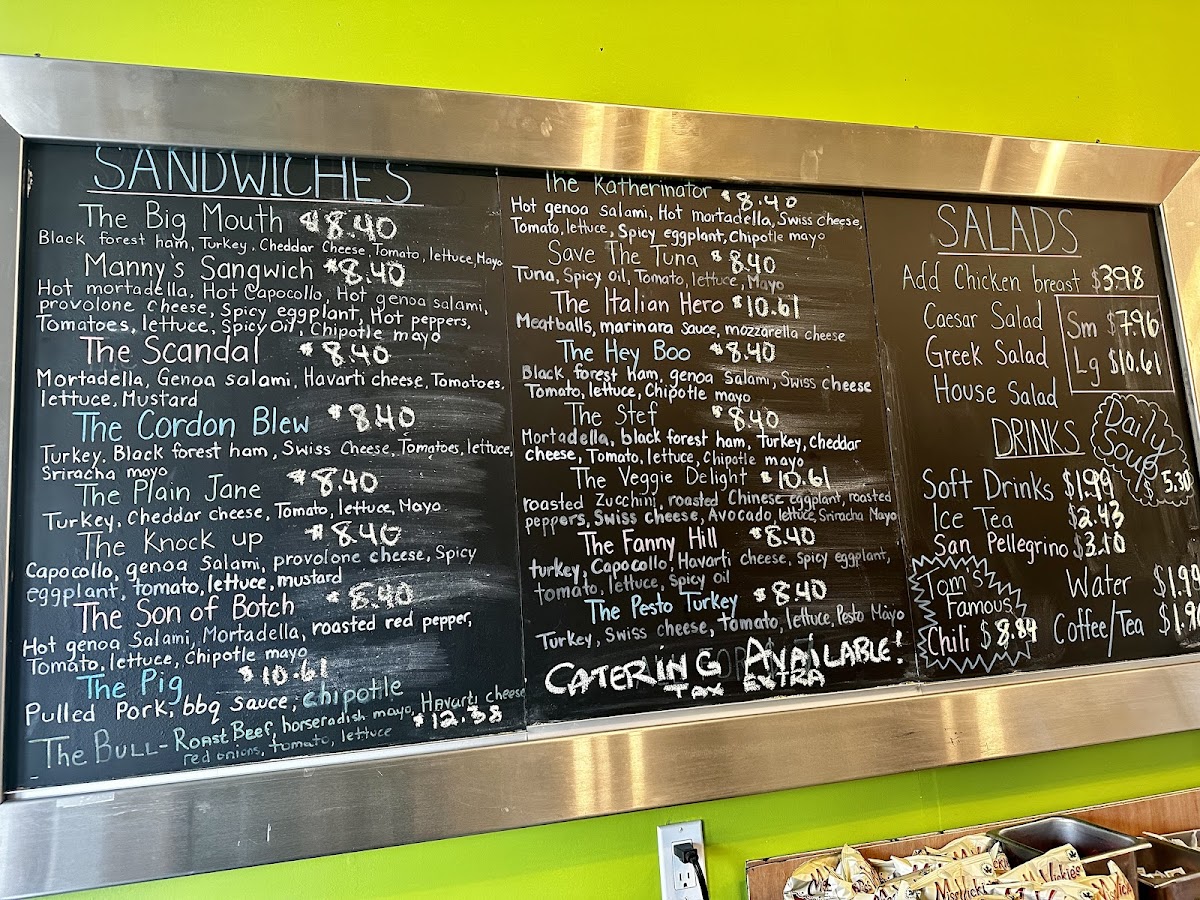 SANDWICHES
The Big Mouth $8.40
Black forest ham, Turkey, Cheddar Cheese, Tomato, lettuce, Mayo
Manny's Sangwich $8.40
Hot mortadella, Hot Capocollo, Hot genoa salami,
provolone cheese, Spicy eggplant, Hot peppers,
Tomatoes, lettuce, Spicy Oil, Chipotle mayo
The Scandal $8.40
Mortadella, Genoa salami, Havarti cheese, Tomatoes,
lettuce, Mustard
The Cordon Blew $8.40
Turkey, Black forest ham, Swiss Cheese, Tomatoes, lettuce,
Sriracha mayo
The Plain Jane $8.40
Turkey, Cheddar cheese, Tomato, lettuce, Mayo
The Knock up $8.40
Capocollo, genoa Salami, provolone cheese, Spicy
eggplant, tomato, lettuce, mustard
The Son of Botch $8.40
Hot genoa Salami, Mortadella, roasted red pepper,
Tomato, lettuce, Chipotle mayo
The Pig $10.61
Pulled Pork, bbq sauce, chipotle
The BULL- Roast Beef, horseradish mayo, Havarti cheese $12.38
red onions, tomato, lettuce
The Katherinator $8.40
Hot genoa salami, Hot mortadella, Swiss cheese,
Tomato, lettuce, Spicy eggplant, Chipotle mayo
Save The Tuna $8.40
Tuna, Spicy oil, Tomato, lettuce, Mayo
The Italian Hero $10.61
Meatballs, marinara sauce, mozzarella cheese
The Hey Boo $8.40
Black forest Ham, genoa Salami, Swiss cheese
Tomato, lettuce, Chipotle mayo
The Stef $8.40
Mortadella, black forest ham, Turkey, cheddar
cheese, Tomato, lettuce, Chipotle mayo
The Veggie Delight $10.61
roasted Zucchini, roasted Chinese eggplant, roasted
peppers, Swiss cheese, Avocado, lettuce, Sriracha Mayo
The Fanny Hill $8.40
turkey, Capocollo, Havarti cheese, Spicy eggplant,
tomato, lettuce, Spicy oil
The Pesto Turkey $8.40
Turkey, Swiss cheese, tomato, lettuce, Pesto Mayo
CATERING AVAILABLE!
TAX EXTRA
SALADS
Add Chicken breast $3.98
Caesar Salad
Greek Salad
House Salad
Sm $7.96
Lg $10.61
DRINKS
Daily
Soup
$5.30
Soft Drinks $1.99
Ice Tea $2.43
San Pellegrino $3.10
Water $1.99
Coffee/Tea
Tom's
Famous
Chili $8.84
MissVickie's